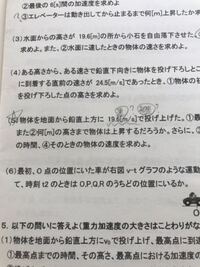 ②最後の6[s]間の加速度を求めよ
③エレベーターは動き出してから止まるまで何[m]上昇したか
(3)水面からの高さが 19.6[m]の所から小石を自由落下させた。①
求めよ。また、②水面に達したときの物体の速さを求めよ。
(4)ある高さから、ある速さで鉛直下向きに物体を投げ下ろしたとこ
に到着する直前の速さが 24.5[m/s]であったとき、①物体の初
を投げ下ろした点の高さを求めよ。
(5)物体を地面から鉛直上方に 19.6[m/s]で投げ上げた。①最
また②何[m]の高さまで物体は上昇するだろうか。さらに、③
の時間、④そのときの物体の速度を求めよ。
(6)最初、O 点にいた物体が右図 v-t グラフのような運動
て、時刻 t2 のときは O,P,Q,R のうちどの位置にいるか。
5. 以下の問いに答えよ(重力加速度の大きさはことわりがな
(1)物体を地面から鉛直上方にv0で投げ上げ、最高点に到達
①最高点までの時間、その高さ、最高点における加速度